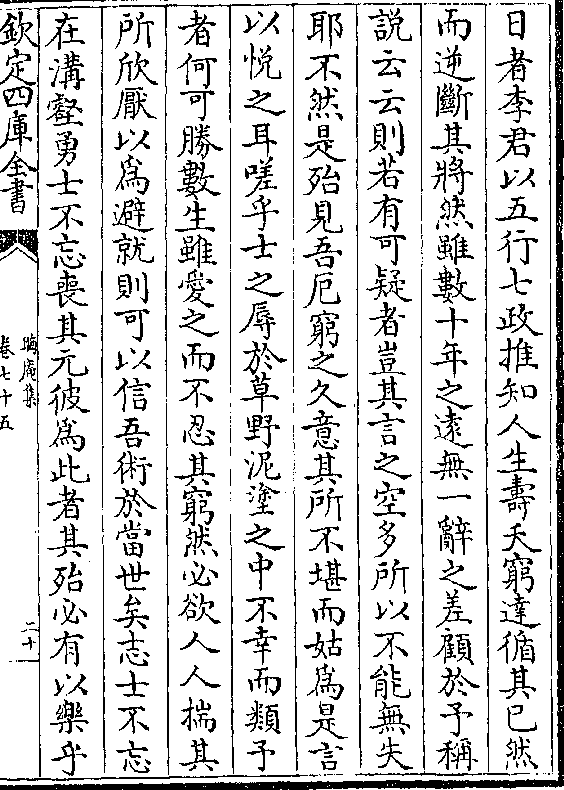 日者李君以五行七政推知人生壽夭窮達循其已然
而逆斷其將然雖數十年之遠無一辭之差顧於予稱
說云云則若有可疑者豈其言之空多所以不能無失
耶不然是殆見吾厄窮之久意其所不堪而姑為是言
以悦之耳嗟乎士之辱於草野泥塗之中不幸而類予
者何可勝數生雖愛之而不忍其窮然必欲人人揣其
所欣厭以為避就則可以信吾術於當世矣志士不忘
在溝壑勇士不忘喪其元彼為此者其殆必有以樂乎
欽定四庫全書
晦庵集
卷七十五
二十